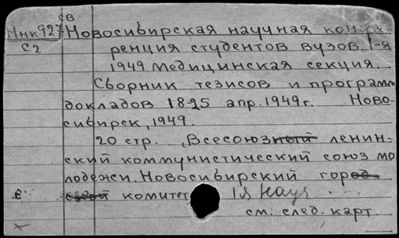 св
Инк927 Новосибирская научная конфе-
С2 ренция студентов вузов. 1-я
1949 Медицинская секция.
Сборник тезисов и программ
докладов 18-25 апр. 1949г. Ново-
сибирск, 1949.
20 стр. Всесоюзный ленин-
ский коммунистический союз мо
лодежи. Новосибирский город
ской комитет
см. след. карт.